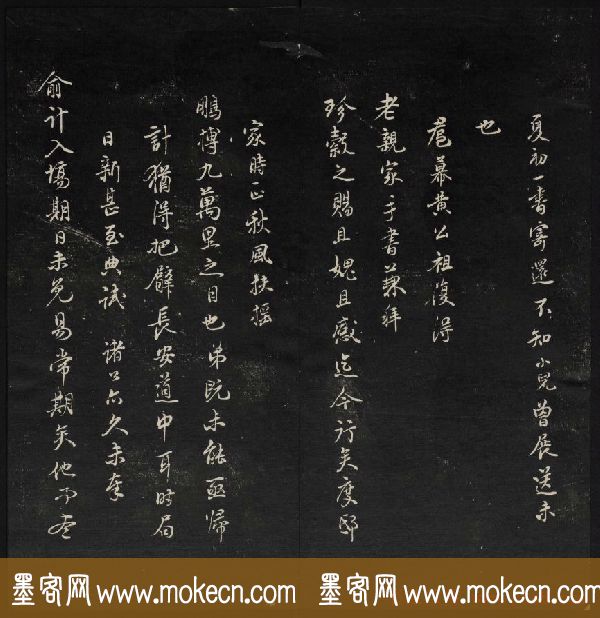 夏初一書寄還不知小兒曾展送未
也
幕黄公祖復得
老親家手書兼拜
珍縠之賜且媿且感迄今行矣度邸
家時正秋風扶搖
鵬摶九萬里之日也弟既未能亟歸
計猶得把臂長安道中耳時局
日新甚至典試諸公亦久未奉
俞計入場期日未免易常期矣他不盡
墨客网 www.mokecn.com 墨客网 www.mokecn.com